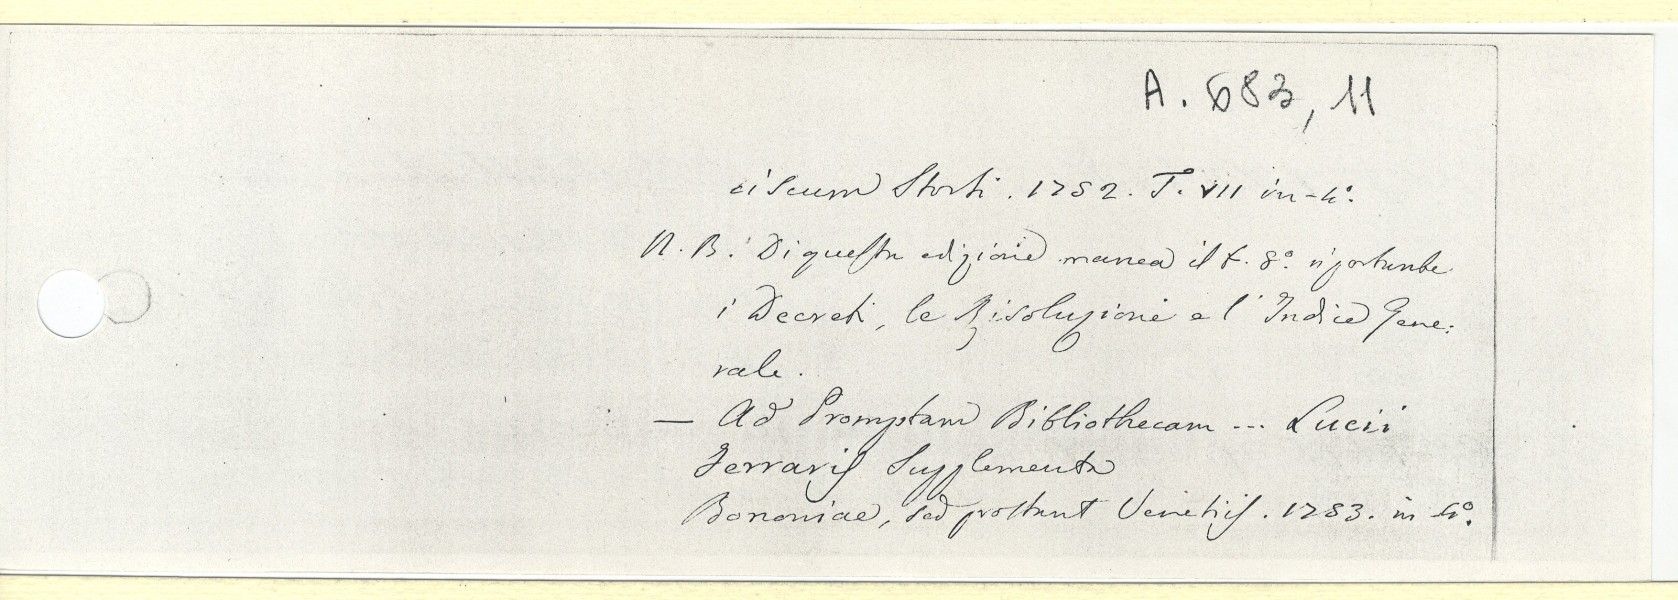 A. 683, 11
ciscum Storti. 1782. T. VII in-4°.
N. B. Di questa edizione manca il t. 8° riportante
i Decreti, le Risoluzioni e l'Indice Gene:
rale.
— Ad Promptam Bibliothecam ... Lucii
Ferraris Supplementa
Bononiae, sed prostant Venetiis. 1783. in 4°.